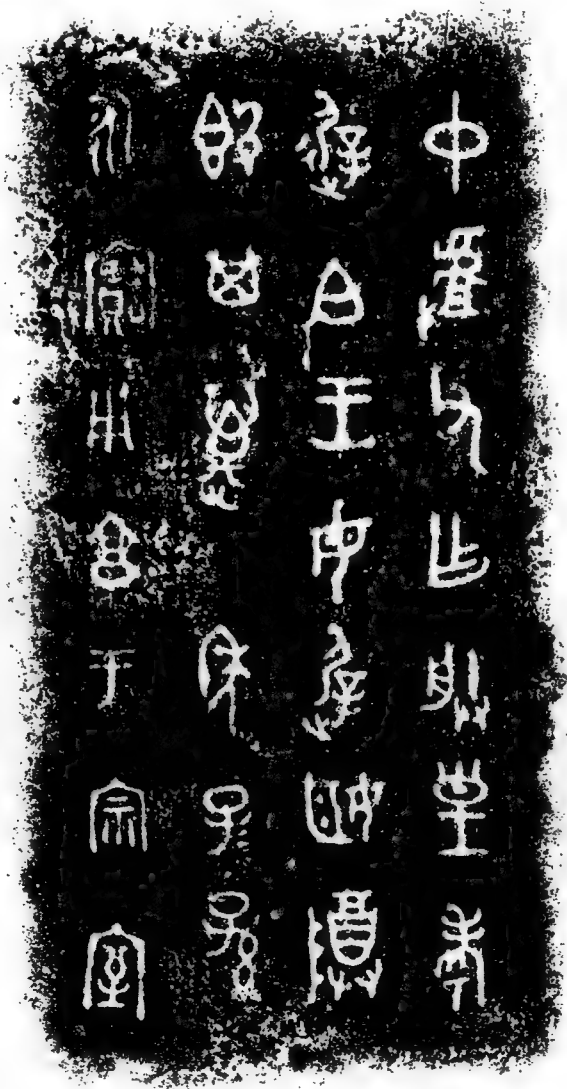 中𠭯父乍朕皇考
遟白王母遟姬𨺅
𣪘其萬年子孫
永寶用享于宗室